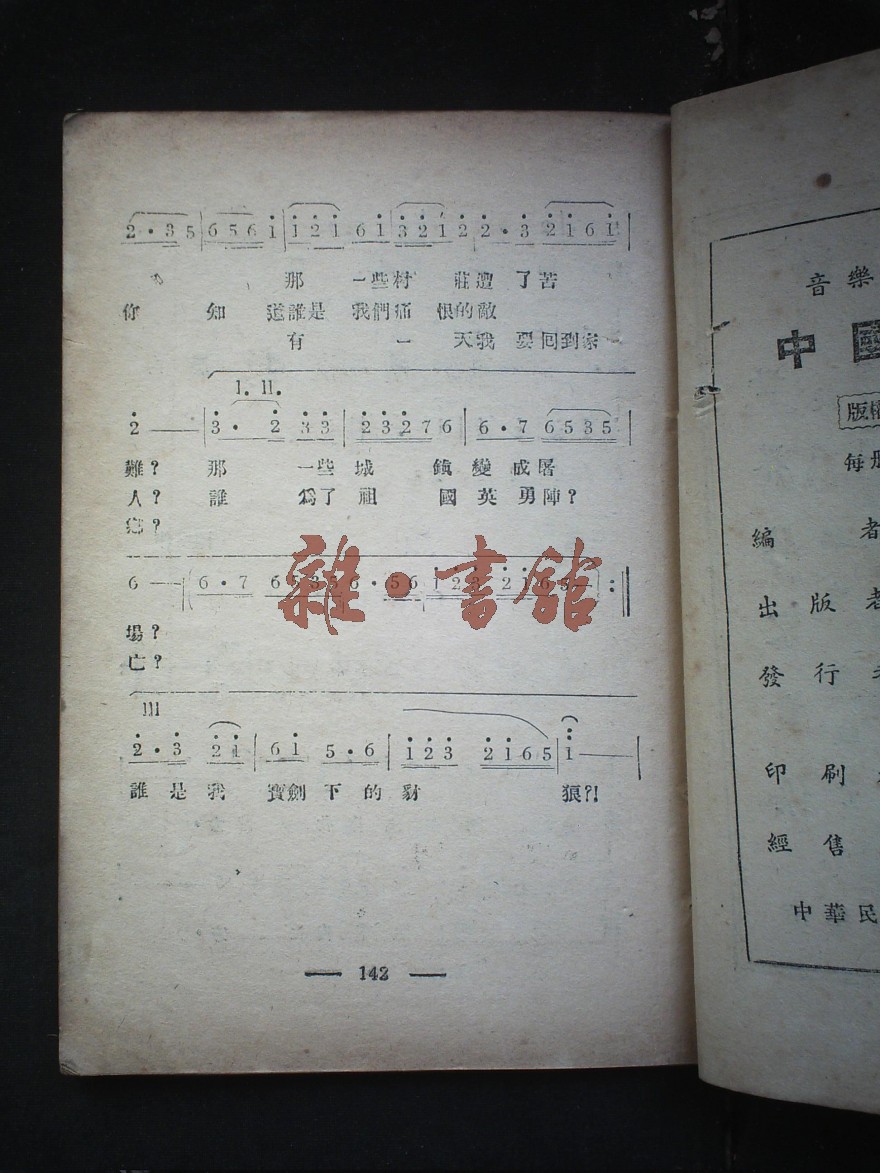 2·35|656i|i2i 6i|32i2|2·3 2i6i|
那 一些村 莊遭 了苦
你 知 道誰是 我們痛 恨的敵
有 一 天我 要回到家
I. II.
2——|3· 2 33|23276|6·7 6535|
難? 那 一些 城 鎮 變 成屠
人? 誰 爲了 祖 國 英 勇陣?
鄉?
6——|(6·7 6535|6·56|123 2165—):‖
場?
亡?
III
2·3 2i|6i 5·6|i23 2i65|i——|
誰 是 我 寶劍 下 的 豺 狼?!
— 142 —
雜·書舘
音樂
中國
版權
每册
編 者
出 版 者
發 行
印 刷
經 售
中華民